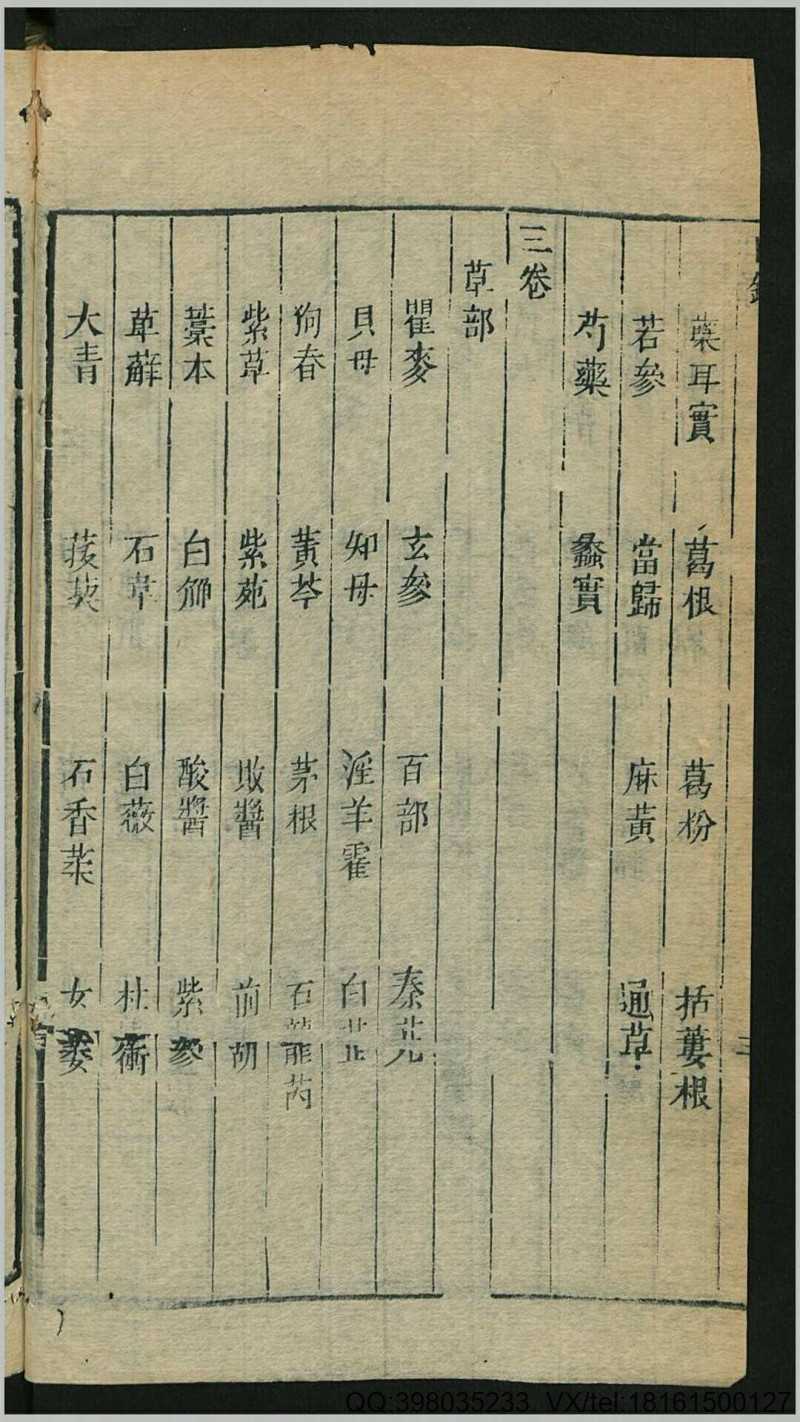 葉耳實　葛根　葛粉　括蔞根
若參　當歸　麻黃　通草
芍藥　蠡實
三卷
草部
瞿麥　玄參　百部　秦艽
貝母　知母　淫羊霍　白芷
狗春　黃芩　茅根　石龍芮
紫草　紫菀　敗醬　前胡
藁本　白鮮　酸醬　紫參
萆薢　石韋　白薇　杜蘅
大青　菝葜　石香葇　女萎
QQ:398035233 VX/tel:18161500127